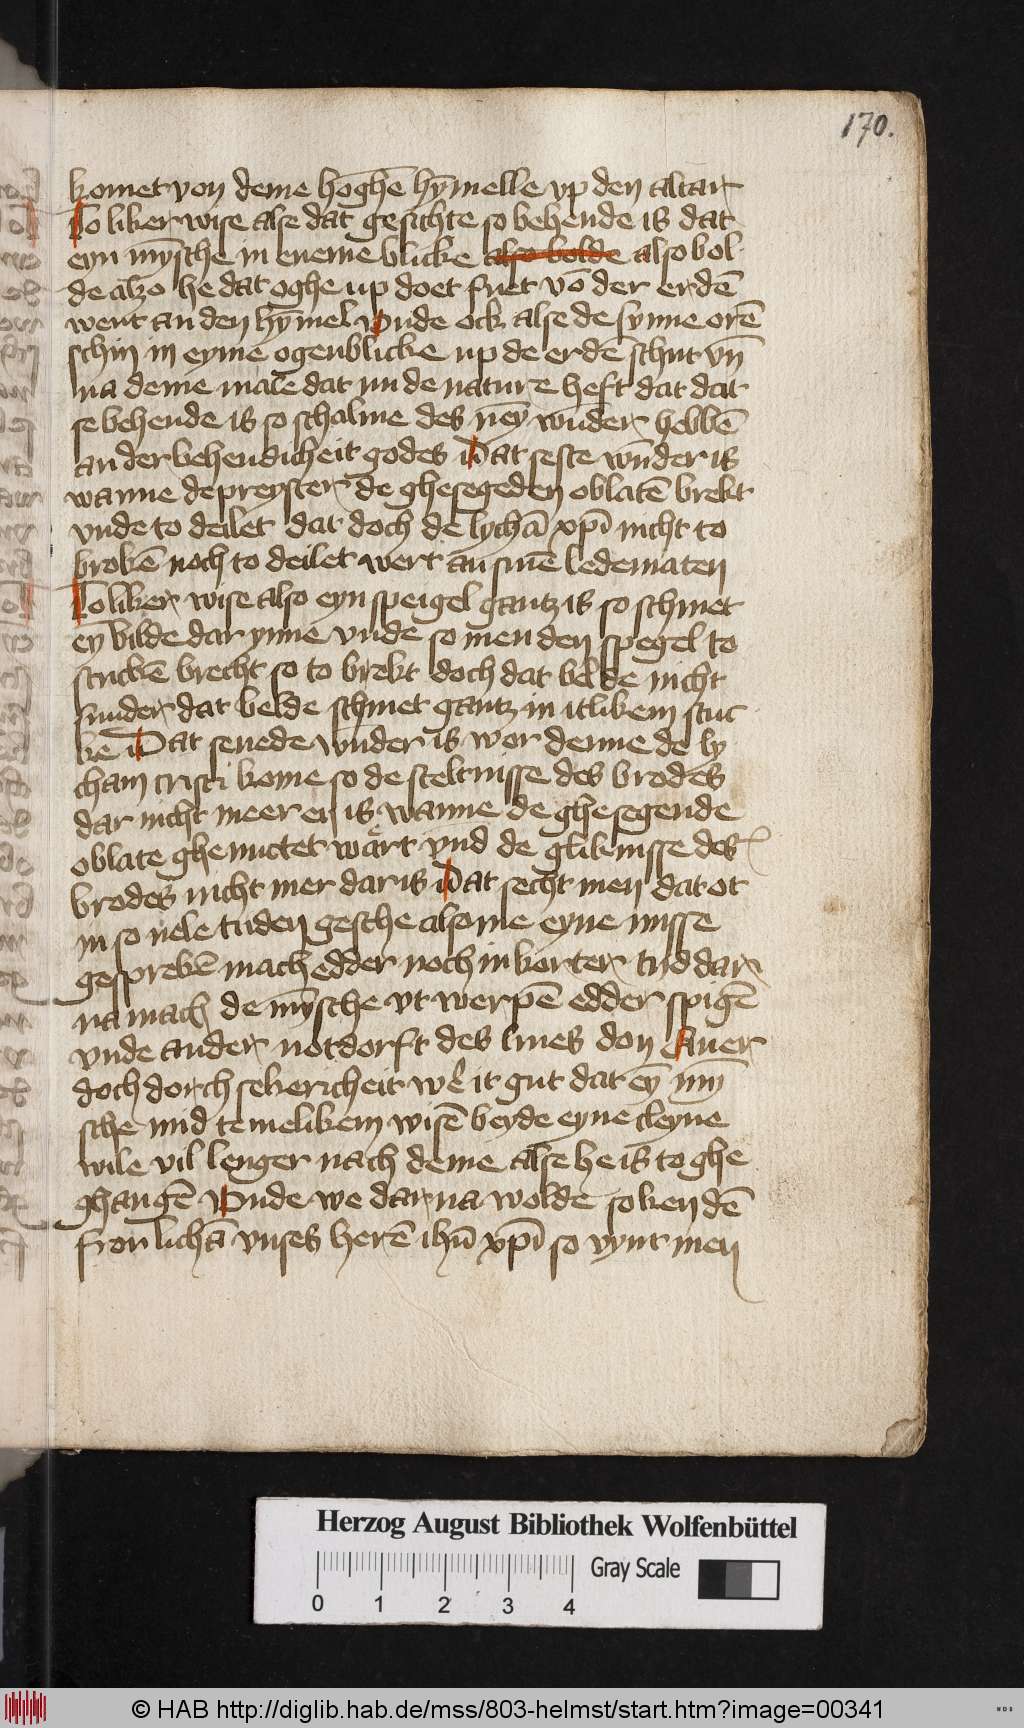 170.
komet von deme hoghē hȳmelle vp den altar
To liker wise alse dat gesichte so behende is dat
eyn mȳsche in eneme blicke also bolde also bol
de alzo he dat oghe up doet suet vō der erdē
went an den hȳmel vnde ock alse de sunne orē
schin in eyme ogenblicke up de erdē schut vn̄
na deme male dat nu de nature heft dat dat
se behende is so schalme des ney wūder hebbē
an der behendicheit godes Dat seste wūder is
wanne de preyster de ghesegeden oblatē brekt
vnde to deilet dat doch de lychā xp̄i nicht to
brokē noch to deilet wert an sinē ledematen
To liker wise also eyn speigel gantz is so schinet
ey bilde dar ynne vnde so men den spegel to
stuckē brecht so to brekt doch dat belde nicht
sunder dat belde schinet gantz in itlikem stuc
ke Dat seuede wūder is wor denne de ly
cham cristi kome so de steltnisse des brodes
dar nicht meer en is wanne de ghesegende
oblate ghenuctet wart vnd de gliknisse des
brodes nicht mer dar is Dat secht men dat ot
in so uele tiiden gesche alsome eyne misse
gesprekē mach edder noch in korter tyd dar
na mach de mȳsche vt werpē edder spigē
vnde ander notdorft des liues don Auer
doch dorch sekericheit wer it gut dat ēy mȳ
sche mid temelikem wisē beyde eyne cleyne
wile vil lenger nach deme alse he is to ghe
ghangē Vnde we dar na wolde soken dē
fron lichā vnses herē ihū xp̄i so vynt men
Herzog August Bibliothek Wolfenbüttel
Gray Scale
0 1 2 3 4
© HAB http://diglib.hab.de/mss/803-helmst/start.htm?image=00341